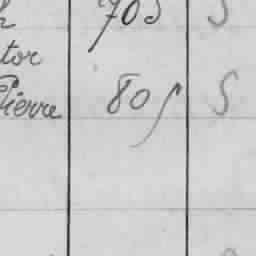 705 S
tor
Pierre 805 S